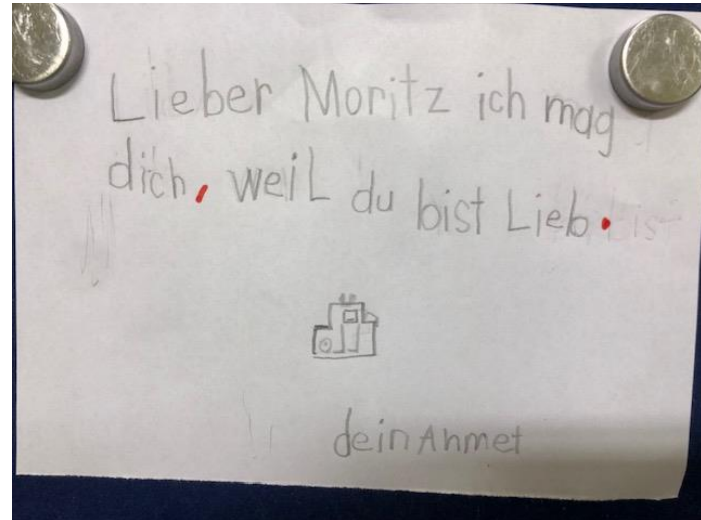 Lieber Moritz ich mag
dich, weil du bist Lieb.
dein Ahmet